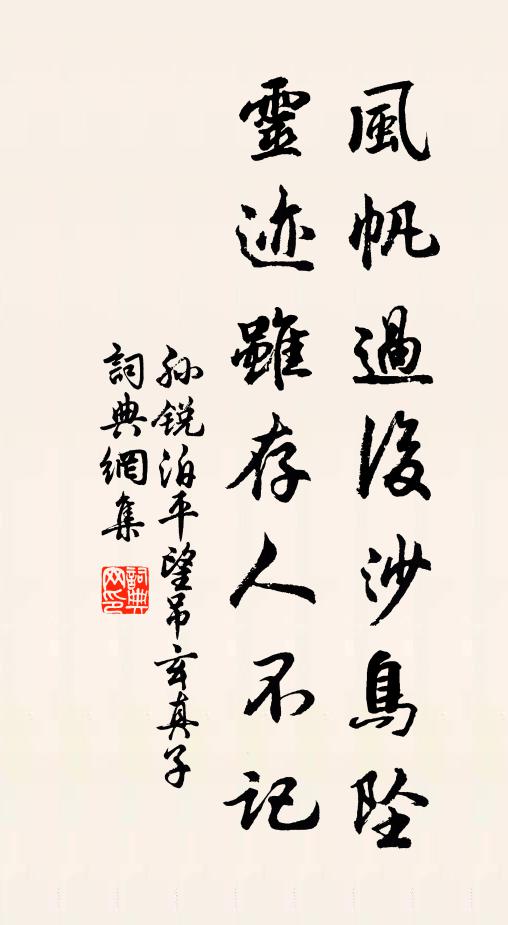 風帆過後沙鳥墜
靈迹雖存人不記
孫銳泊平望吊玄真子
詞典網集
詞典網印